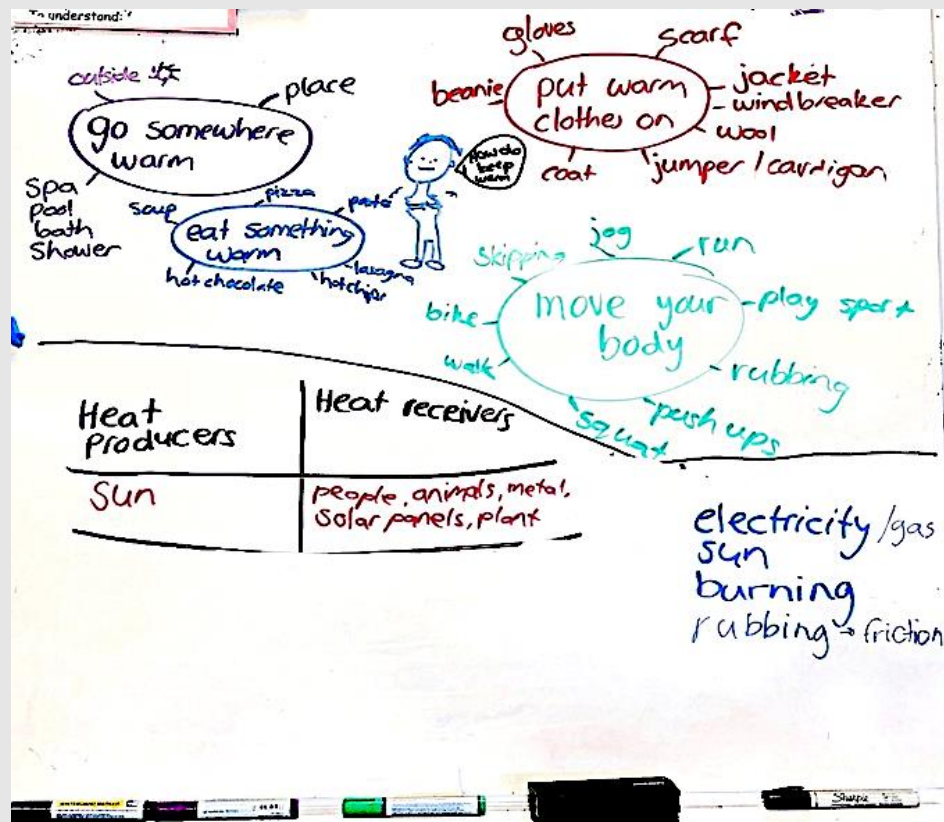 To understand:
outside
place
go somewhere
warm
spa
pool
bath
shower
soup
pizza
pasta
eat something
warm
hot chocolate
hotchips
lasagna
How do
keep
warm
gloves
scarf
beanie
put warm
clothes on
jacket
windbreaker
wool
coat
jumper / cardigan
skipping
jog
run
bike
move your
body
play sport
walk
rubbing
squat
push ups
Heat
Producers
Heat receivers
Sun
people, animals, metal,
Solar panels, plant
electricity /gas
sun
burning
rubbing → friction
Sharpie